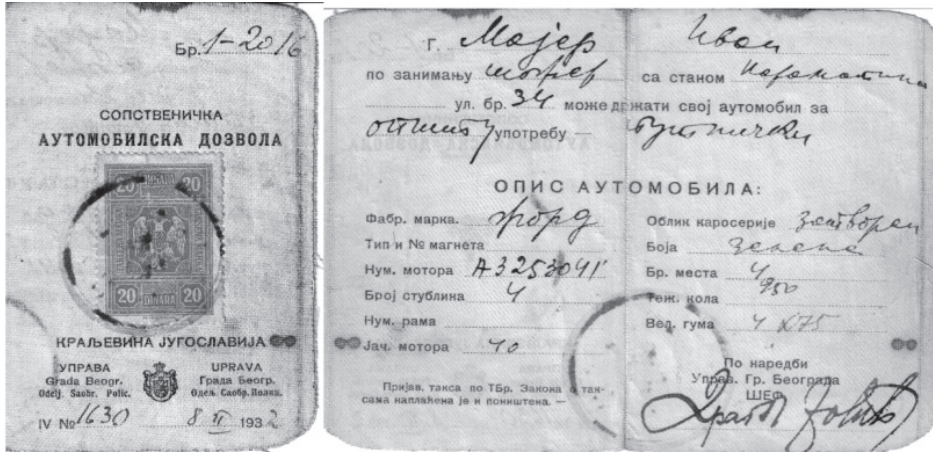 Бр. 1-2016
СОПСТВЕНИЧКА
АУТОМОБИЛСКА ДОЗВОЛА
20 DINARA 20
20 DINARA 20
КРАЉЕВИНА ЈУГОСЛАВИЈА
УПРАВА
Grada Beogr.
Odelj. Saobr. Polic.
UPRAVA
Града Беогр.
Одељ. Саобр. Полиц.
IV № 1630 8 II 1932
Г. Мајер Иван
по занимању шофер са станом
ул. бр. 34 може држати свој аутомобил за
општу употребу — путнички
ОПИС АУТОМОБИЛА:
Фабр. марка. Форд
Тип и № магнета
Нум. мотора А3253041
Број стублина 4
Нум. рама
Јач. мотора 40
Облик каросерије затворен
Боја зелена
Бр. места 4
Теж. кола 950
Вел. гума 4 x 75
Пријав. такса по ТБр. Закона о так-
сама наплаћена је и поништена. —
По наредби
Управ. Гр. Београда
ШЕФ